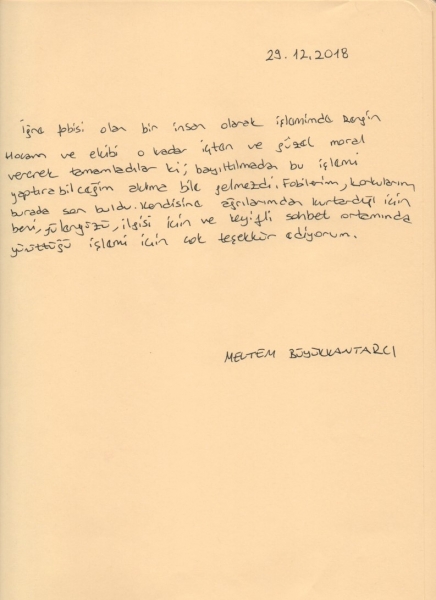 29.12.2018
İğne fobisi olan bir insan olarak işlemimde Zengin
Hocam ve ekibi o kadar içten ve güzel moral
vererek tamamladılar ki; bayıltılmadan bu işlemi
yaptıra bileceğim aklıma bile gelmezdi. Fobilerim, korkularım
burada son buldu. Kendisine ağrılarımdan kurtardığı için
beni, güleryüzü, ilgisi için ve keyifli sohbet ortamında
yürüttüğü işlemi için çok teşekkür ediyorum.
MELTEM BÜYÜKKANTARCI